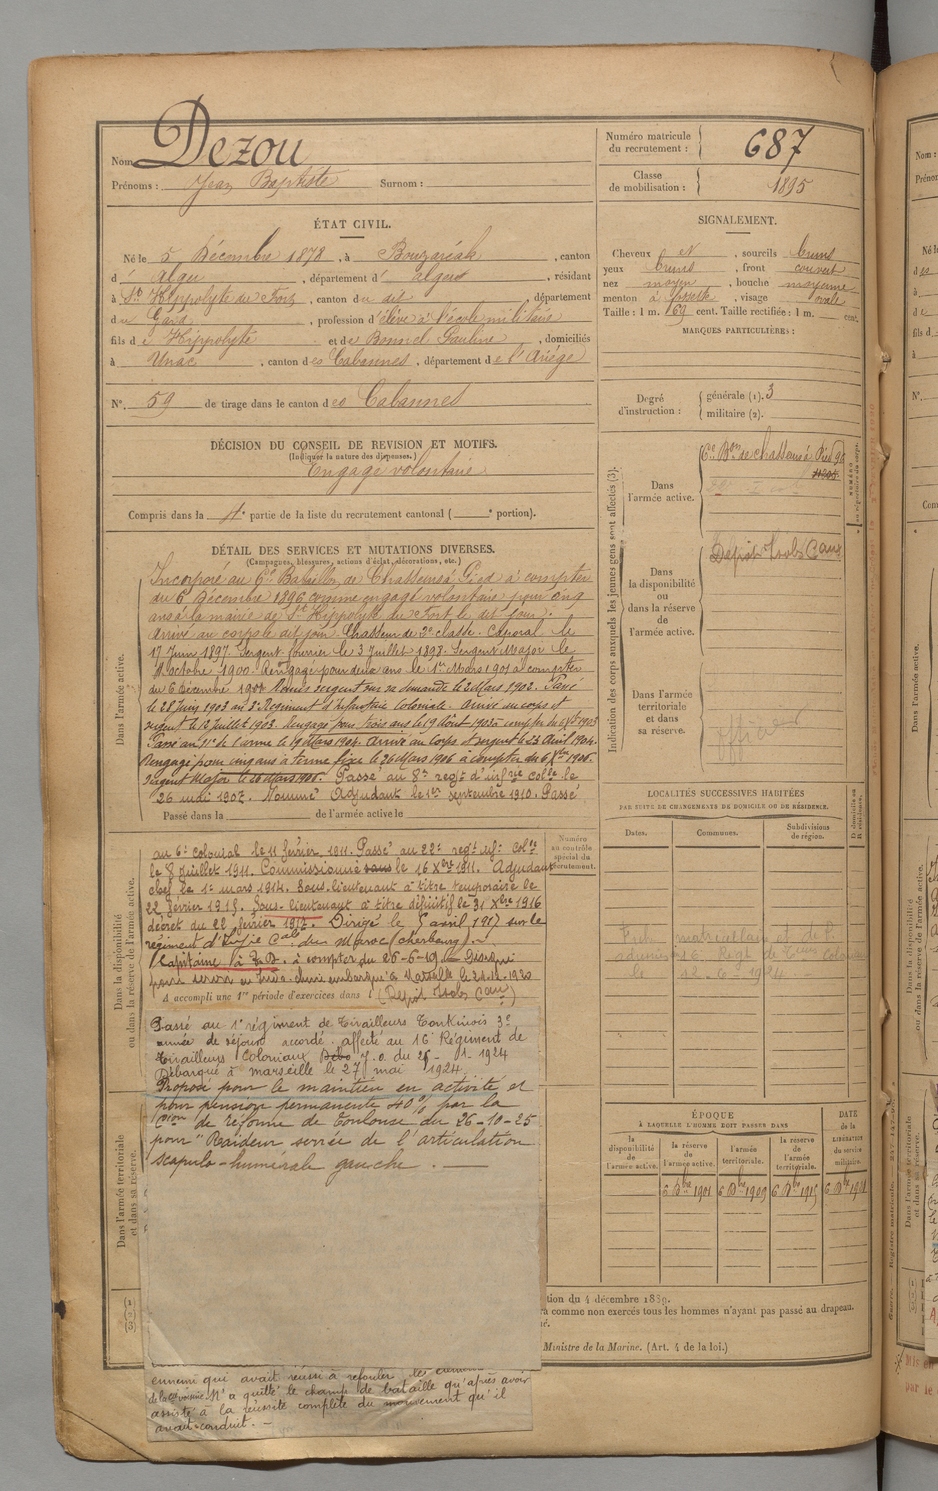 Nom Dezou
Prénoms : Jean Baptiste Surnom :
Numéro matricule du recrutement : 687
Classe de mobilisation : 1895
ÉTAT CIVIL.
Né le 5 Décembre 1878, à Bouzaréah, canton
d' Alger, département d' Alger, résidant
à St Hippolyte du Fort, canton du dit département
du Gard, profession d'élève à l'école militaire
fils de Hippolyte et de Bonnel Pauline, domiciliés
à Unac, canton des Cabannes, département de l'Ariège
N° 59 de tirage dans le canton des Cabannes
SIGNALEMENT.
Cheveux et, sourcils bruns
yeux bruns, front couvert
nez moyen, bouche moyenne
menton à fossette, visage ovale
Taille : 1 m. 69 cent. Taille rectifiée : 1 m. cent.
MARQUES PARTICULIÈRES :
Degré d'instruction : générale (1). 3
militaire (2).
DÉCISION DU CONSEIL DE REVISION ET MOTIFS.
(Indiquer la nature des dispenses.)
Engagé volontaire
Compris dans la partie de la liste du recrutement cantonal ( portion).
DÉTAIL DES SERVICES ET MUTATIONS DIVERSES.
(Campagnes, blessures, actions d'éclat, décorations, etc.)
Dans l'armée active.
Incorporé au 6e Bataillon de Chasseurs à Pied à compter
du 6 Décembre 1896 comme engagé volontaire pour cinq
ans à la mairie de St Hippolyte du Fort le dit jour.
Arrivé au corps le dit jour. Chasseur de 2e classe. Caporal le
17 Juin 1897. Sergent fourrier le 3 Juillet 1898. Sergent Major le
octobre 1900. Rengagé pour deux ans le 1er Mars 1901 à compter
du 6 Décembre 1901 Nommé sergent sur sa demande le 2 Mars 1902. Passé
le 28 Juin 1903 au 2e Régiment d'Infanterie Coloniale. Arrivé au corps et
sergent le 12 Juillet 1903. Rengagé pour trois ans le 19 Août 1903 à compter du 6 Xbre 1903
Passé au 11e de l'arme le 19 Mars 1904. Arrivé au corps et sergent le 23 Avril 1904.
Rengagé pour cinq ans à terme fixe le 26 Mars 1906 à compter du 6 Xbre 1906.
Sergent Major le 26 Mars 1906. Passé au 8e regt d'infrie colle le
26 mai 1907. Nommé Adjudant le 1er septembre 1910. Passé
Passé dans la de l'armée active le
Dans la disponibilité ou dans la réserve de l'armée active.
au 6e colonial le 11 février 1911. Passé au 22e regt infie colle
le 8 juillet 1911. Commissionné sans le 16 Xbre 1911. Adjudant
chef le 1er mars 1914. Sous-lieutenant à titre temporaire le
22 février 1915. Sous-lieutenant à titre définitif le 31 Xbre 1916
décret du 22 février 1917. Dirigé le 5 avril 1917 sur le
régiment d'Infie Cale du Maroc (cherbourg).
Capitaine à T.D. à compter du 26-6-19
A accompli une 1re période d'exercices dans l (Dépot Isolés Caux)
Passé au 1e régiment de Tirailleurs Tonkinois 3e
année de séjour accordé. affecté au 16 Régiment de
Tirailleurs Coloniaux J.O. du 1-1924
Débarqué à marseille le 27 mai 1924
Proposé pour le maintien en activité et
pour pension permanente 40% par la
Con de réforme de Toulouse du 26-10-25
pour "Raideur serrée de l'articulation
scapulo-humérale gauche.
ennemi qui avait réussi à refouler les
de la Cie voisine. N'a quitté le champ de bataille qu'après avoir
assisté à la réussite complète du mouvement qu'il
avait conduit.
Dans l'armée territoriale et dans sa réserve.
Numéro au contrôle spécial du recrutement.
Indication des corps auxquels les jeunes gens sont affectés (3).
Dans l'armée active.
6e Bon de chasseurs à Pied
Dans la disponibilité ou dans la réserve de l'armée active.
Dépot Isolés Caux
Dans l'armée territoriale et dans sa réserve.
officier
LOCALITÉS SUCCESSIVES HABITÉES
PAR SUITE DE CHANGEMENTS DE DOMICILE OU DE RÉSIDENCE.
Dates. Communes. Subdivisions de région.
matriculaire et de
16e Regt de Tirrs Coloniaux
le 12-6-1924
ÉPOQUE
À LAQUELLE L'HOMME DOIT PASSER DANS
la disponibilité de l'armée active.
la réserve de l'armée active.
l'armée territoriale.
la réserve de l'armée territoriale.
DATE de la LIBÉRATION du service militaire.
6 Dbre 1901 6 Dbre 1909 6 Dbre 1915 6 Dbre 1921
tion du 4 décembre 1889.
à comme non exercés tous les hommes n'ayant pas passé au drapeau.
Ministre de la Marine. (Art. 4 de la loi.)